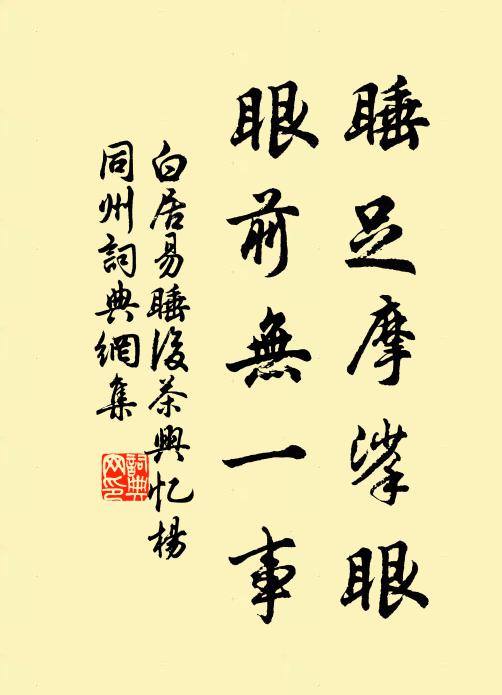 睡足摩挲眼
眼前無一事
白居易睡後茶興忆楊
同州詞典網集
詞典
网印